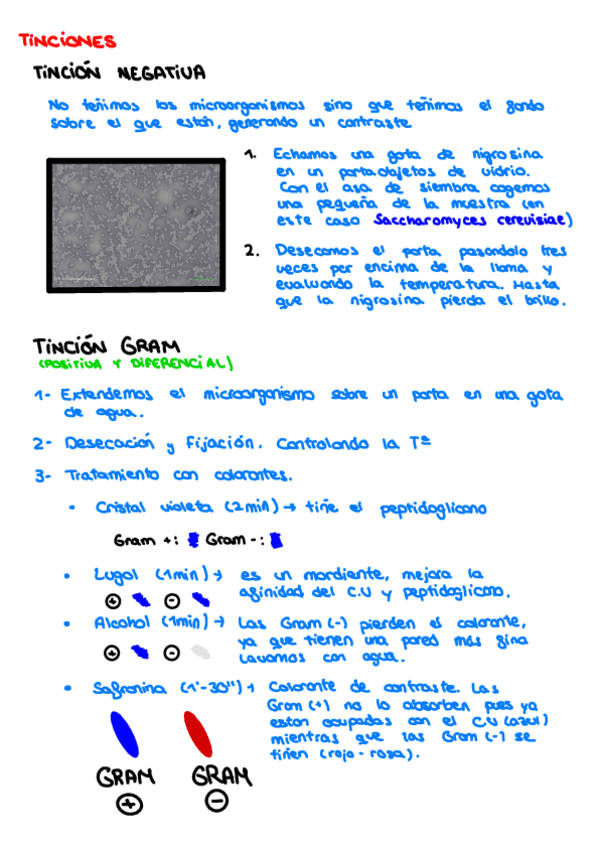 TINCIONES
TINCIÓN NEGATIVA
No teñimos los microorganismos sino que teñimos el fondo
sobre el que están, generando un contraste
1. Echamos una gota de nigrosina
en un portaobjetos de vidrio.
Con el asa de siembra cogemos
una pequeña de la muestra (en
este caso Saccharomyces cerevisiae)
2. Desecamos el porta pasandolo tres
veces por encima de la llama y
evaluando la temperatura. Hasta
que la nigrosina pierda el brillo.
TINCIÓN GRAM
(POSITIVA Y DIFERENCIAL)
1- Extendemos el microorganismo sobre un porta en una gota
de agua.
2- Desecación y Fijación. Controlando la Tª
3- Tratamiento con colorantes.
• Cristal violeta (2min) → tiñe el peptidoglicano
Gram +: Gram -:
• Lugol (1min) → es un mordiente, mejora la
afinidad del C.V y peptidoglicano.
+ -
• Alcohol (1min) → Las Gram (-) pierden el colorante,
ya que tienen una pared más fina
Lavamos con agua.
+ -
• Safronina (1'-30'') → Colorante de contraste. Las
Gram (+) no lo absorben pues ya
estan ocupadas con el C.V (azul)
mientras que las Gram (-) se
tiñen (rojo-rosa).
GRAM GRAM
+ -